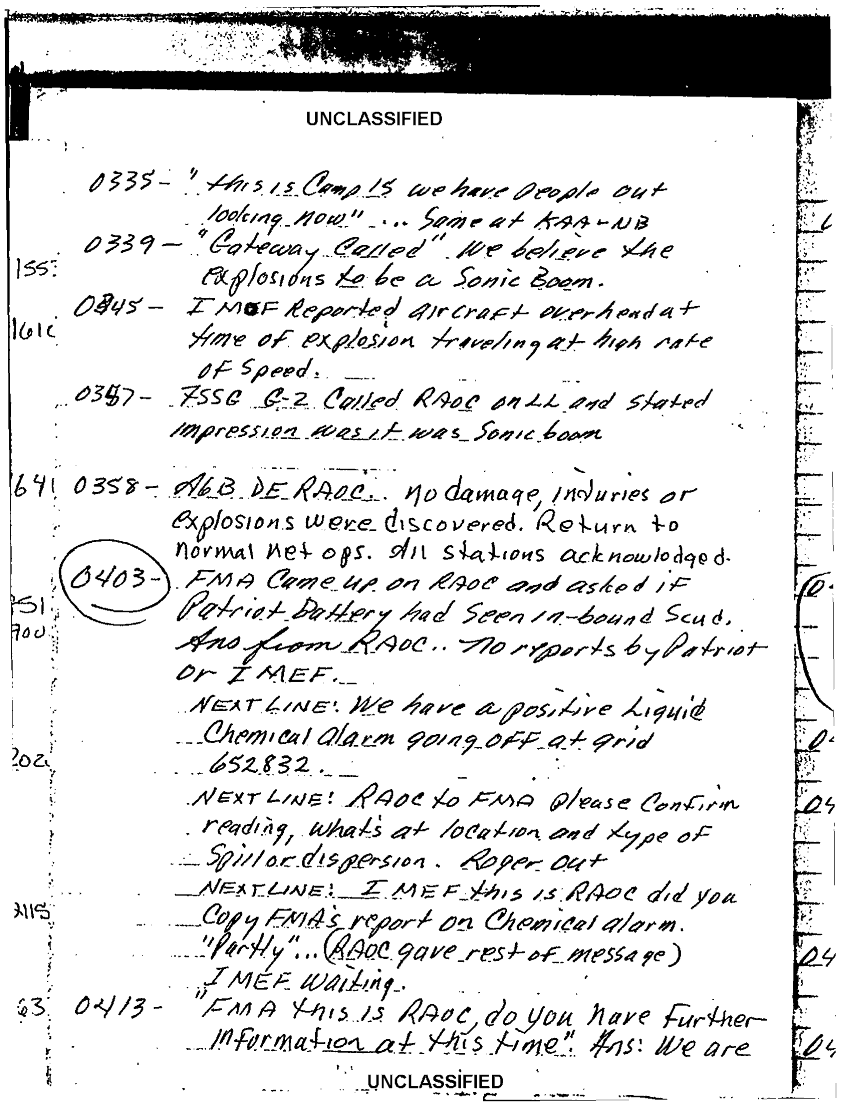 UNCLASSIFIED
0335- "this is Camp 15 we have people out
looking now" ... Same at KAA-NB
0339 - "Gateway Called" We believe the
explosions to be a Sonic Boom.
155
0345 - I MEF Reported aircraft overhead at
161
time of explosion traveling at high rate
of Speed.
0357- 7SSG G-2 Called RAOC on LL and stated
impression was it was Sonic boom
1641
0358- A6B DE RAOC.. no damage, injuries or
explosions were discovered. Return to
normal net ops. All stations acknowledged.
0403- FMA Came up on RAOC and asked if
Patriot Battery had seen in-bound Scud.
Ans from RAOC.. no reports by Patriot
or I MEF.
NEXT LINE: We have a positive Liquid
Chemical alarm going off at grid
652832.
NEXT LINE! RAOC to FMA please Confirm
reading, what's at location and type of
Spill or dispersion. Roger out
NEXT LINE! I MEF this is RAOC did you
2115
Copy FMA's report on Chemical alarm.
"Partly"... (RAOC gave rest of message)
I MEF waiting.
0413- "FMA this is RAOC, do you have further
information at this time". Ans: We are
UNCLASSIFIED